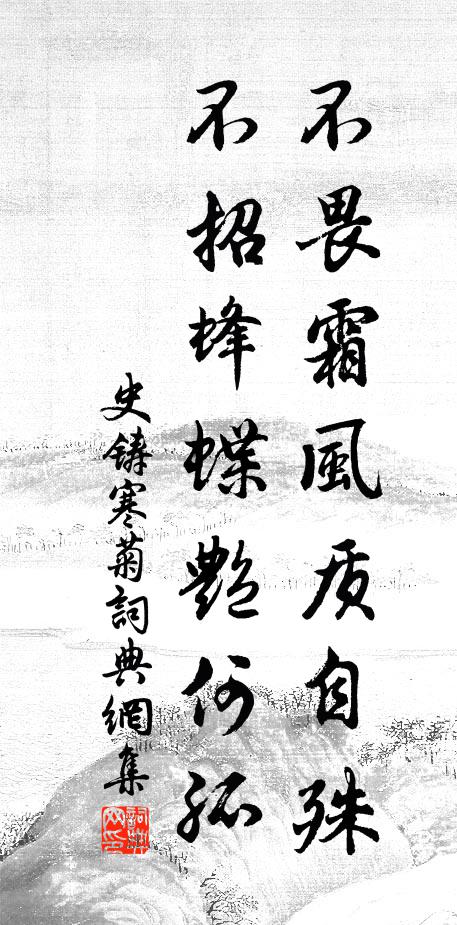 不畏霜風质自殊
不招蜂蝶艷何孤
史鑄寒菊詞典網集